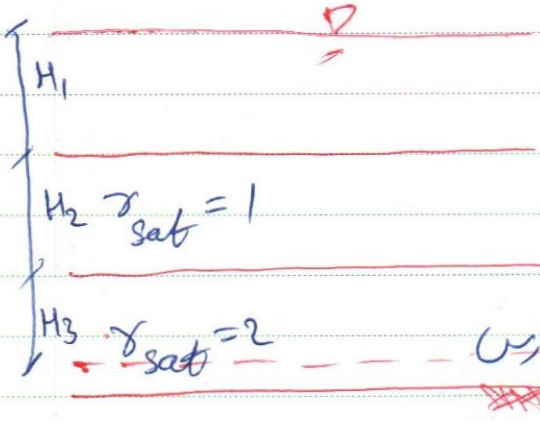 H₁
H₂ γsat = 1
H₃ γsat = 2